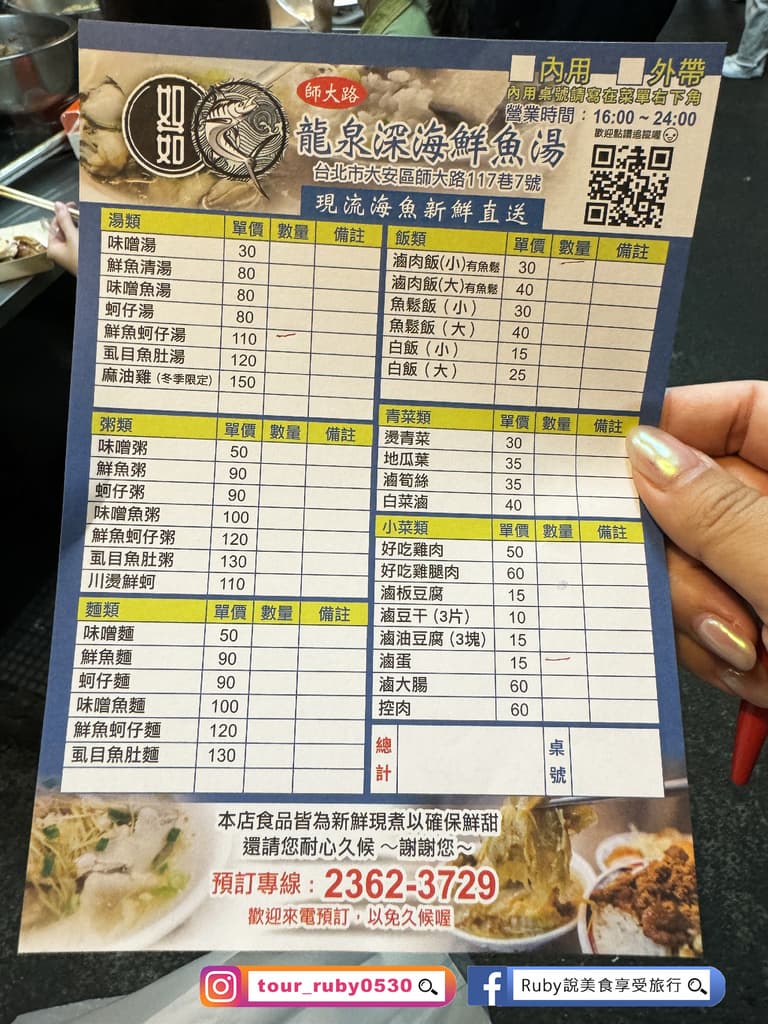 內用 外帶
內用桌號請寫在菜單右下角
營業時間：16:00～24:00
歡迎點讚追蹤喔
如如
師大路
龍泉深海鮮魚湯
台北市大安區師大路117巷7號
現流海魚新鮮直送
湯類 單價 數量 備註
味噌湯 30
鮮魚清湯 80
味噌魚湯 80
蚵仔湯 80
鮮魚蚵仔湯 110
虱目魚肚湯 120
麻油雞 (冬季限定) 150
粥類 單價 數量 備註
味噌粥 50
鮮魚粥 90
蚵仔粥 90
味噌魚粥 100
鮮魚蚵仔粥 120
虱目魚肚粥 130
川燙鮮蚵 110
麵類 單價 數量 備註
味噌麵 50
鮮魚麵 90
蚵仔麵 90
味噌魚麵 100
鮮魚蚵仔麵 120
虱目魚肚麵 130
飯類 單價 數量 備註
滷肉飯(小)有魚鬆 30
滷肉飯(大)有魚鬆 40
魚鬆飯（小） 30
魚鬆飯（大） 40
白飯（小） 15
白飯（大） 25
青菜類 單價 數量 備註
燙青菜 30
地瓜葉 35
滷筍絲 35
白菜滷 40
小菜類 單價 數量 備註
好吃雞肉 50
好吃雞腿肉 60
滷板豆腐 15
滷豆干 (3片) 10
滷油豆腐 (3塊) 15
滷蛋 15
滷大腸 60
控肉 60
總計 桌號
本店食品皆為新鮮現煮以確保鮮甜
還請您耐心久候～謝謝您～
預訂專線：2362-3729
歡迎來電預訂，以免久候喔
tour_ruby0530
Ruby說美食享受旅行